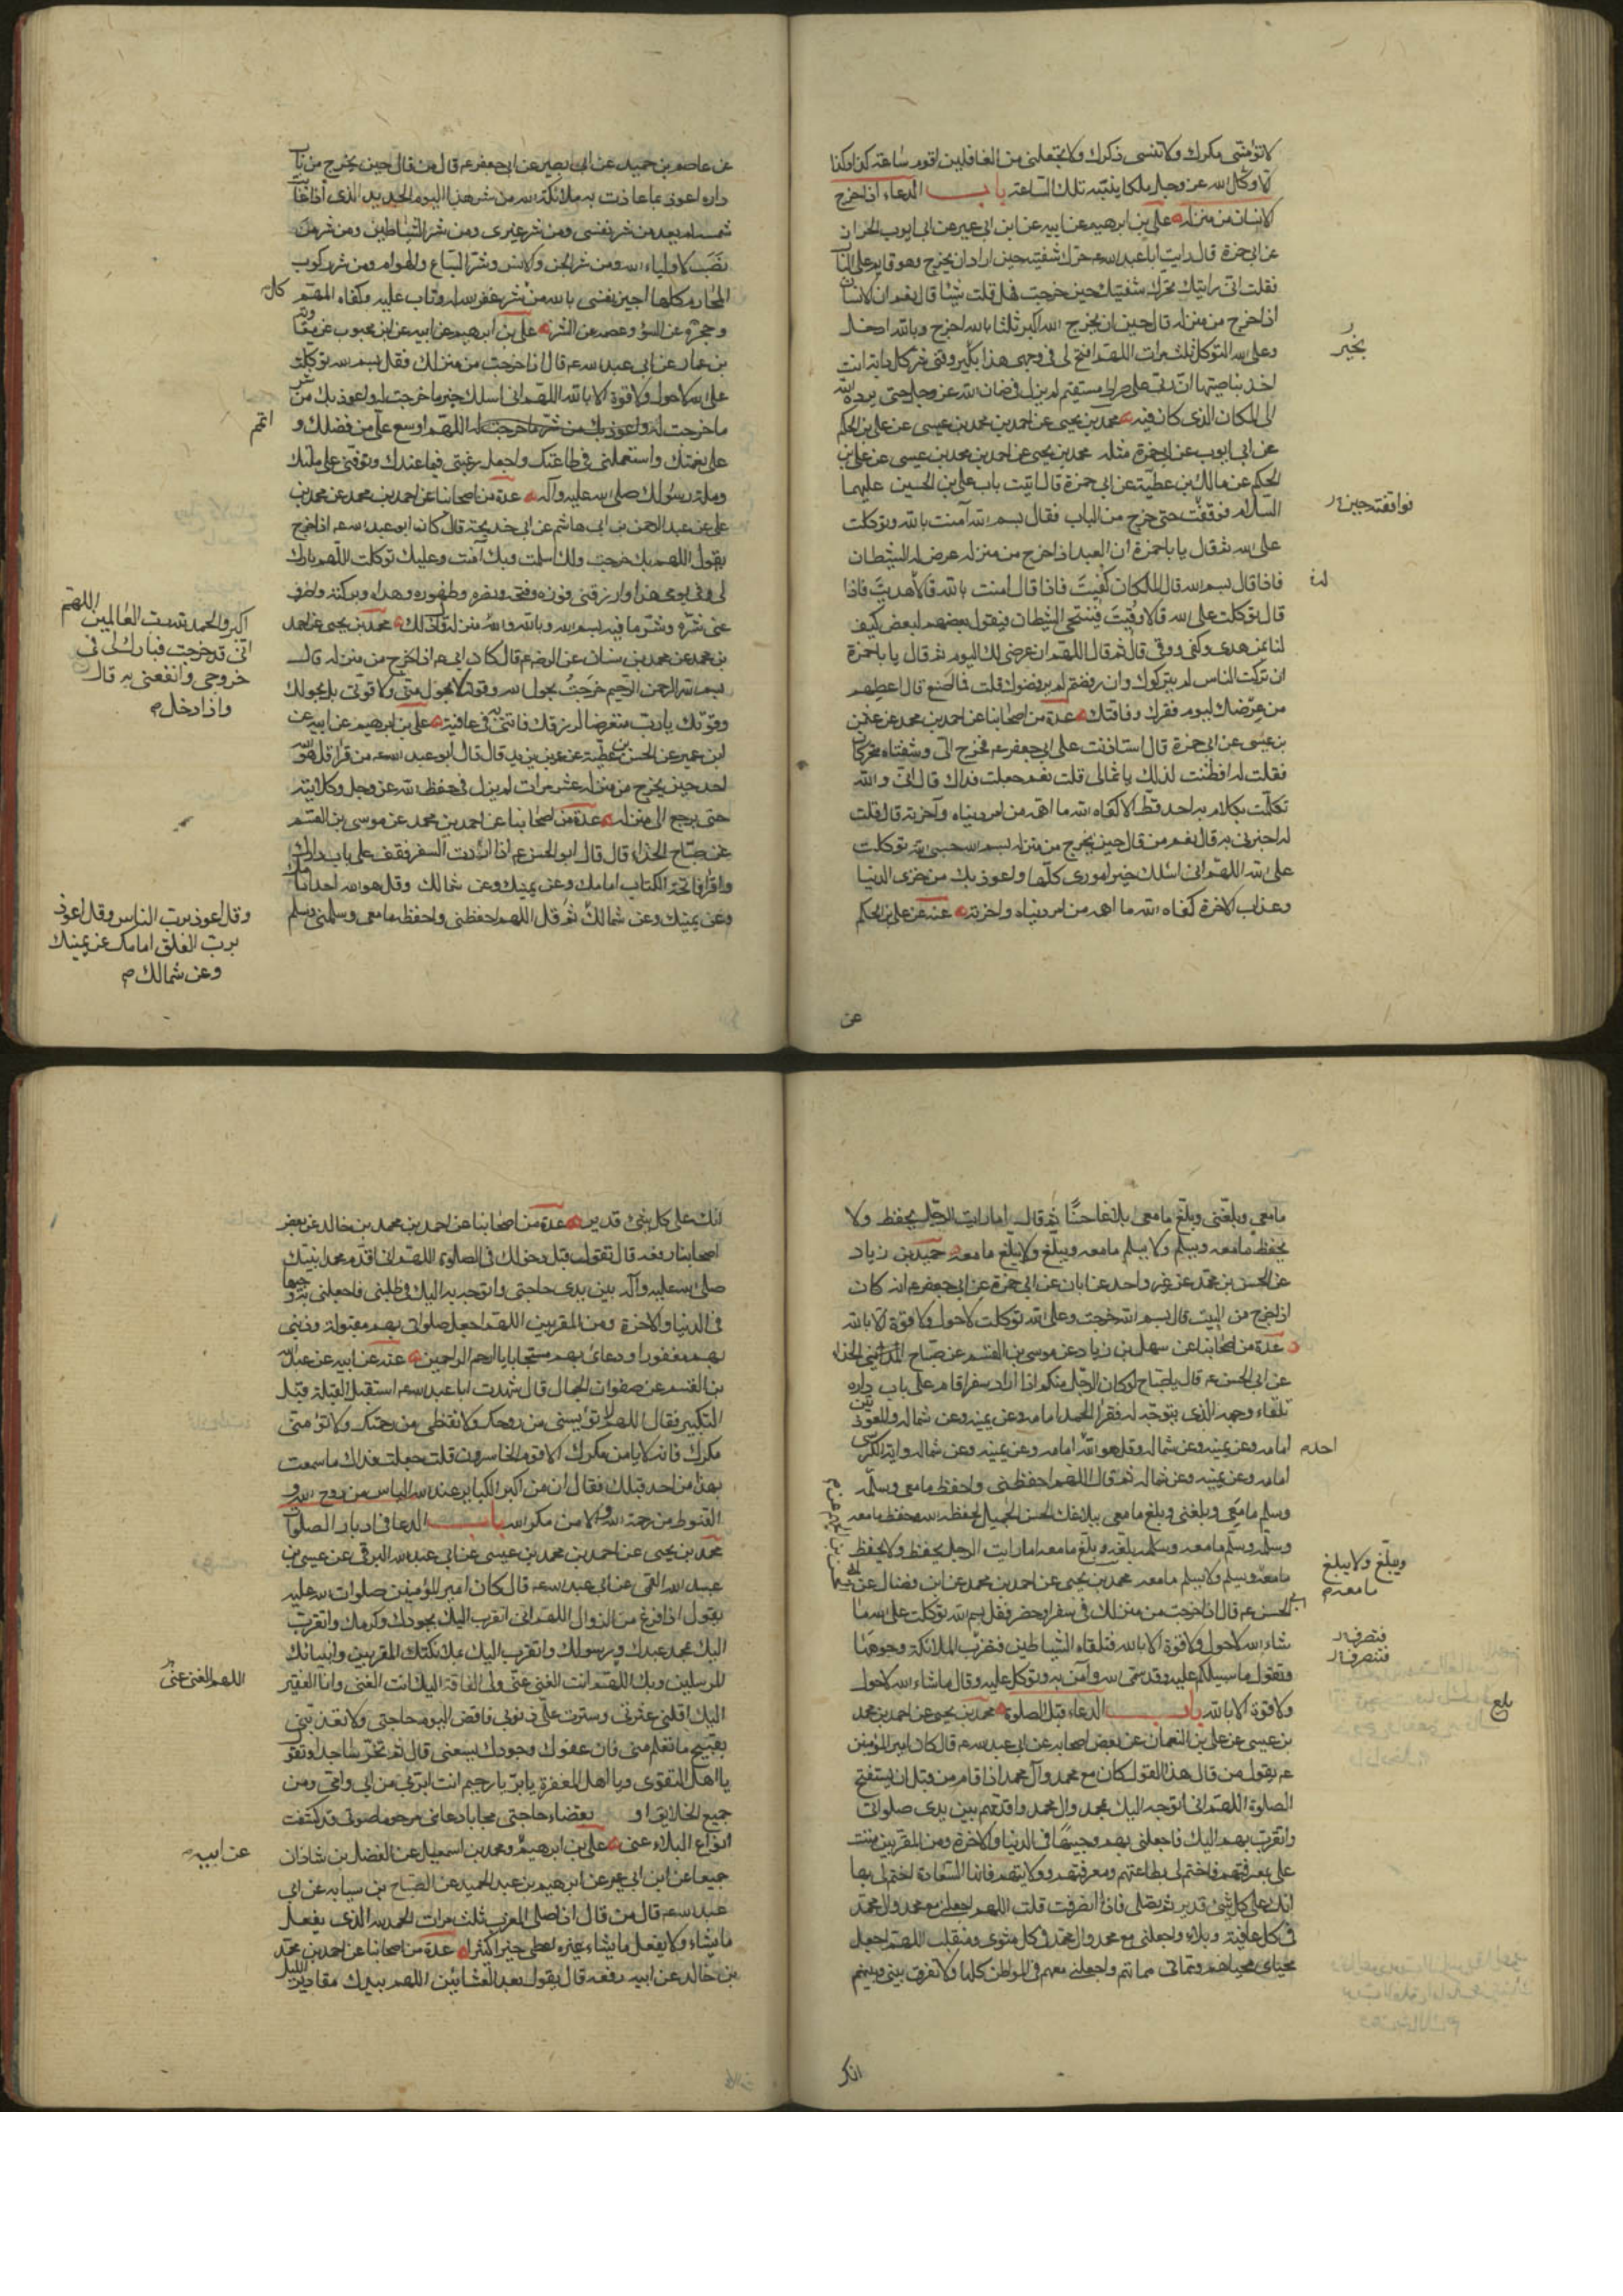 لا تؤمنّي مكرك ولا تنسني ذكرك ولا تجعلني من الغافلين اقوم ساعة كذا وكذا
الا وكل الله عز وجل به ملكا ينبهه تلك الساعة باب الدعاء اذا خرج
الانسان من منزله علي بن ابرهيم عن ابيه عن ابن ابي عمير عن ابي ايوب الخزاز
عن ابي حمزة قال رايت ابا عبد الله ع يحرك شفتيه حين اراد ان يخرج وهو قايم على الباب
فقلت اني رايتك تحرك شفتيك حين خرجت فهل قلت شيئا قال نعم ان الانسان
اذا خرج من منزله قال حين ان يخرج الله اكبر ثلثا بالله اخرج وبالله ادخل
وعلى الله اتوكل ثلث مرات اللهم افتح لي في وجهي هذا بخير وقني شر كل دابة انت
اخذ بناصيتها ان ربي على صراط مستقيم لم يزل في ضمان الله عز وجل حتى يرده الله
الى المكان الذي كان فيه محمد بن يحيى عن احمد بن محمد بن عيسى عن علي بن الحكم
عن ابي ايوب عن ابي حمزة مثله محمد بن يحيى عن احمد بن محمد بن عيسى عن علي بن
الحكم عن مالك بن عطية عن ابي حمزة قال اتيت باب علي بن الحسين عليهما
السلام فوقفت حتى خرج من الباب فقال بسم الله آمنت بالله وتوكلت
على الله ثم قال يا با حمزة ان العبد اذا خرج من منزله عرض له الشيطان
فاذا قال بسم الله قال الملكان كفيت فاذا قال امنت بالله قالا هديت فاذا
قال توكلت على الله قالا وقيت فيتنحى الشيطان فيقول بعضهم لبعض كيف
لنا بمن هدي وكفي ووقي قال ثم قال اللهم ان عرضي لك اليوم ثم قال يا با حمزة
ان تركت الناس لم يتركوك وان رفضتهم لم يرفضوك قلت فما اصنع قال اعطهم
من عرضك ليوم فقرك وفاقتك عدة من اصحابنا عن احمد بن محمد عن عثمن
بن عيسى عن ابي حمزة قال استاذنت على ابي جعفر ع فخرج الي وشفتاه تتحركان
فقلت له افطنت لذلك يا ثمالي قلت نعم جعلت فداك قال اني والله
تكلمت بكلام ما تكلم به احد قط الا كفاه الله ما اهمه من امر دنياه وآخرته قال قلت
له اخبرني به قال نعم من قال حين يخرج من منزله بسم الله حسبي الله توكلت
على الله اللهم اني اسئلك خير اموري كلها واعوذ بك من خزي الدنيا
وعذاب الاخرة كفاه الله ما اهمه من امر دنياه واخرته عنه عن علي بن الحكم
بخير
عن
عن عاصم بن حميد عن ابي بصير عن ابي جعفر ع قال من قال حين يخرج من باب
داره اعوذ بما عاذت به ملائكة الله من شر هذا اليوم الجديد الذي اذا غابت
شمسه لم يعد من شر نفسي ومن شر غيري ومن شر الشياطين ومن شر من
نصب لاولياء الله ومن شر الجن والانس وشر السباع والهوام ومن شر ركوب
المحارم كلها اجير نفسي بالله من شر غفر الله له وتاب عليه وكفاه المهم
وحجزه عن السوء وعصمه عن الشر علي بن ابرهيم عن ابيه عن ابن محبوب عن معوية
بن عمار عن ابي عبد الله ع قال اذا خرجت من منزلك فقل بسم الله توكلت
على الله لا حول ولا قوة الا بالله اللهم اني اسئلك خير ما خرجت له واعوذ بك من شر
ما خرجت له اللهم اوسع علي من فضلك و
على نعمتك واستعملني في طاعتك واجعل رغبتي فيما عندك وتوفني على ملتك
وملة رسولك صلى الله عليه وآله عدة من اصحابنا عن احمد بن محمد عن محمد بن
علي عن عبد الرحمن بن ابي هاشم عن ابي خديجة قال كان ابو عبد الله ع اذا خرج
يقول اللهم بك خرجت ولك اسلمت وبك آمنت وعليك توكلت اللهم بارك
لي في يومي هذا وارزقني فوزه وفتحه ونصره وطهوره وهداه وبركته واصرف
عني شره وشر ما فيه بسم الله وبالله والله محمد بن يحيى عن احمد
بن محمد عن محمد بن سنان عن الرضا ع قال كان ابي ع اذا خرج من منزله قال
بسم الله الرحمن الرحيم خرجت بحول الله وقوته لا بحول مني ولا قوتي بل بحولك
وقوتك يا رب متعرضا لرزقك فاتني به في عافية علي بن ابرهيم عن ابيه عن
ابن عمير عن الحسن بن عطية عن عمر بن يزيد قال قال ابو عبد الله ع من قرا قل هو الله
احد حين يخرج من منزله عشر مرات لم يزل في حفظ الله عز وجل وكلايته
حتى يرجع الى منزله عدة من اصحابنا عن احمد بن محمد عن موسى بن القسم
عن صباح الحذاء قال قال ابو الحسن ع اذا اردت السفر فقف على باب دارك
واقرا فاتحة الكتاب امامك وعن يمينك وعن شمالك وقل هو الله احد امامك
وعن يمينك وعن شمالك ثم قل اللهم احفظني واحفظ ما معي وسلمني وسلم
اتمم
اكبر والحمد لله رب العالمين اللهم
اني قد خرجت فبارك لي في
خروجي وانفعني به قال
واذا دخل م
وقل اعوذ برب الناس وقل اعوذ
برب الفلق امامك عن يمينك
وعن شمالك م
ما معي وبلغني وبلغ ما معي بلاغا حسنا ثم قال اما رايت الرجل يحفظ ولا
يحفظ ما معه ويسلم ولا يسلم ما معه ويبلغ ولا يبلغ ما معه حميد بن زياد
عن الحسن بن محمد عن غير واحد عن ابان عن ابي حمزة عن ابي جعفر ع انه كان
اذا خرج من البيت قال بسم الله خرجت وعلى الله توكلت لا حول ولا قوة الا بالله
عدة من اصحابنا عن سهل بن زياد عن موسى بن القسم عن صباح الحذاء
عن ابي الحسن ع قال يا صباح لو كان الرجل منكم اذا اراد سفرا قام على باب داره
تلقاء وجهه الذي يتوجه له فقرا الحمد امامه وعن يمينه وعن شماله والمعوذتين
امامه وعن يمينه وعن شماله وقل هو الله امامه وعن يمينه وعن شماله واية الكرسي
امامه وعن يمينه وعن شماله ثم قال اللهم احفظني واحفظ ما معي وسلمني
وسلم ما معي وبلغني وبلغ ما معي ببلاغك الحسن الجميل لحفظه الله وحفظ ما معه
وسلمه وسلم ما معه وبلغه وبلغ ما معه اما رايت الرجل يحفظ ولا يحفظ
ما معه ويسلم ولا يسلم ما معه محمد بن يحيى عن احمد بن محمد عن ابن فضال عن
الحسن ع قال اذا خرجت من منزلك في سفر او حضر فقل بسم الله توكلت على الله ما
شاء الله لا حول ولا قوة الا بالله فتلقاه الشياطين فتضرب الملائكة وجوهها
وتقول ما سبيلكم عليه وقد سمى الله وآمن به وتوكل عليه وقال ما شاء الله لا حول
ولا قوة الا بالله باب الدعاء قبل الصلوة محمد بن يحيى عن احمد بن محمد
بن عيسى عن علي بن النعمان عن بعض اصحابه عن ابي عبد الله ع قال كان امير المؤمنين
ع يقول من قال هذا القول كان مع محمد وآل محمد اذا قام من قبل ان يستفتح
الصلوة اللهم اني اتوجه اليك بمحمد وال محمد واقدمهم بين يدي صلواتي
واتقرب بهم اليك فاجعلني بهم وجيها في الدنيا والاخرة ومن المقربين مننت
علي بمعرفتهم فاختم لي بطاعتهم ومعرفتهم وولايتهم فانها السعادة اختم لي بها
انك على كل شئ قدير ثم تصلي فاذا انصرفت قلت اللهم اجعلني مع محمد وال محمد
في كل عافية وبلاء واجعلني مع محمد وال محمد في كل مثوى ومنقلب اللهم اجعل
محياي محياهم ومماتي مماتهم واجعلني معهم في المواطن كلها ولا تفرق بيني وبينهم
احد م
ويبلغ ولا يبلغ
ما معه م
بلغ
انك
انك على كل شئ قدير عدة من اصحابنا عن احمد بن محمد بن خالد عن بعض
اصحابنا رفعه قال تقول قبل دخولك في الصلوة اللهم اني اقدم محمدا نبيك
صلى الله عليه وآله بين يدي حاجتي واتوجه به اليك في طلبتي فاجعلني به وجيها
في الدنيا والاخرة ومن المقربين اللهم اجعل صلواتي بهم مقبولة وذنبي
بهم مغفورا ودعائي بهم مستجابا يا ارحم الراحمين عنه عن ابيه عن عبد الله
بن القسم عن صفوان الجمال قال شهدت ابا عبد الله ع استقبل القبلة قبل
التكبير فقال اللهم لا تؤيسني من روحك ولا تقنطني من رحمتك ولا تؤمني
مكرك فانه لا يامن مكرك الا القوم الخاسرون قلت جعلت فداك ما سمعت
بهذا من احد قبلك فقال ان من اكبر الكبائر عند الله الياس من روح الله و
القنوط من رحمة الله والامن مكر الله باب الدعاء في ادبار الصلوات
محمد بن يحيى عن احمد بن محمد بن عيسى عن ابي عبد الله البرقي عن عيسى بن
عبد الله القمي عن ابي عبد الله ع قال كان امير المؤمنين صلوات الله عليه
يقول اذا فرغ من الزوال اللهم اني اتقرب اليك بجودك وكرمك واتقرب
اليك بمحمد عبدك ورسولك واتقرب اليك بملائكتك المقربين وانبيائك
المرسلين وبك اللهم انت الغني عني وبي الفاقة اليك انت الغني وانا الفقير
اليك اقلني عثرتي وسترت علي ذنوبي فاقض اليوم حاجتي ولا تعذبني
بقبيح ما تعلم مني فان عفوك وجودك يسعني قال ثم تخر ساجدا وتقول
يا اهل التقوى ويا اهل المغفرة يا بر يا رحيم انت ابر بي من ابي وامي ومن
جميع الخلايق بقضاء حاجتي مجابا دعائي مرحوما صوتي قد كشفت
انواع البلاء عني علي بن ابرهيم ومحمد بن اسمعيل عن الفضل بن شاذان
جميعا عن ابن ابي عمير عن ابرهيم بن عبد الحميد عن الصباح بن سيابه عن ابي
عبد الله ع قال من قال اذا صلى المغرب ثلث مرات الحمد لله الذي يفعل
ما يشاء ولا يفعل ما يشاء غيره اعطي خيرا كثيرا عدة من اصحابنا عن احمد بن محمد
بن خالد عن ابيه رفعه قال يقول بعد العشائين اللهم بيدك مقادير الليل
عن ابيه